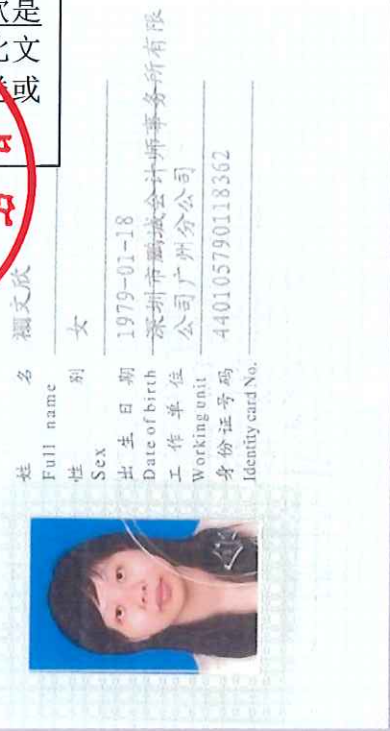 款是
此文
或
姓 名 禤文欣
Full name
性 别 女
Sex
出 生 日 期 1979-01-18
Date of birth
工 作 单 位 深圳市鹏城会计师事务所有限
Working unit 公司广州分公司
身份证号码 440105790118362
Identity card No.